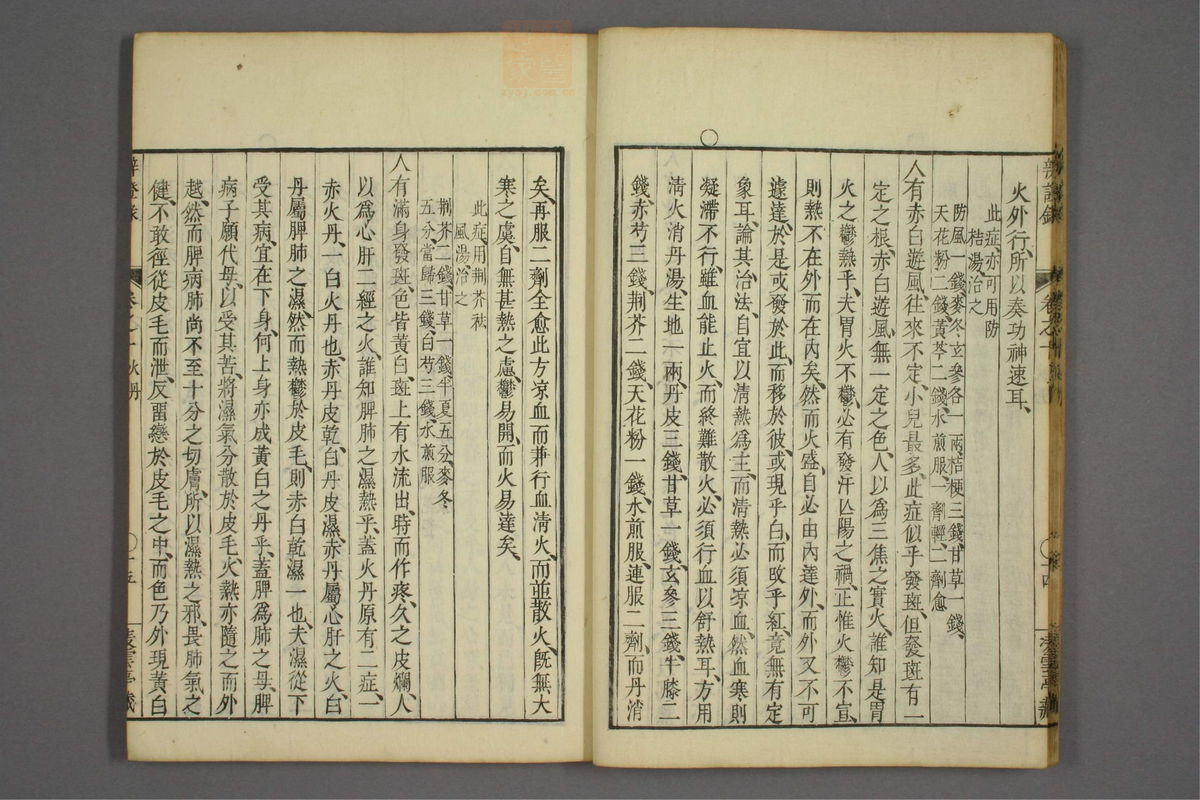 火外行、所以奏功神速耳、
此症、亦可用防
桔湯治之
防風一錢、麥冬、玄參各一兩、桔梗三錢、甘草一錢、
天花粉二錢、黃芩二錢、水煎服、一劑輕、二劑愈
人有赤白遊風、往來不定、小兒最多、此症似乎發斑、但發斑有一
定之根、赤白遊風、無一定之色、人以爲三焦之實火、誰知是胃
火之鬱熱乎、夫胃火不鬱、必有發汗亾陽之禍、正惟火鬱不宣、
則熱不在外而在內矣、然而火盛、自必由內達外、而外又不可
遽達、於是或發於此、而移於彼、或現乎白、而改乎紅、竟無有定
象耳、論其治法、自宜以清熱爲主、而清熱必須凉血、然血寒則
凝滯不行、雖血能止火、而終難散火、必須行血以舒熱耳、方用
清火消丹湯、生地一兩、丹皮三錢、甘草一錢、玄參三錢、牛膝二
錢、赤芍三錢、荆芥二錢、天花粉一錢、水煎服、連服二劑、而丹消
矣、再服二劑全愈、此方凉血而兼行血、清火、而並散火、旣無大
寒之虞、自無甚熱之慮、鬱易開、而火易達矣、
此症、用荆芥祛
風湯治之
荆芥二錢、甘草一錢、半夏五分、麥冬
五分、當歸三錢、白芍三錢、水煎服
人有滿身發斑、色皆黃白、斑上有水流出、時而作疼、久之皮爛、人
以爲心肝二經之火、誰知脾肺之濕熱乎、蓋火丹原有二症、一
赤火丹、一白火丹也、赤丹皮乾、白丹皮濕、赤丹屬心肝之火、白
丹屬脾肺之濕、然而熱鬱於皮毛、則赤白乾濕一也、夫濕從下
受、其病宜在下身、何上身亦成黃白之丹乎、蓋脾爲肺之母、脾
病子願代母、以受其苦、將濕氣分散於皮毛、火熱亦隨之而外
越、然而脾病肺尚不至十分之切膚、所以濕熱之邪、畏肺氣之
健、不敢徑從皮毛而泄、反畱戀於皮毛之中、而色乃外現黃白